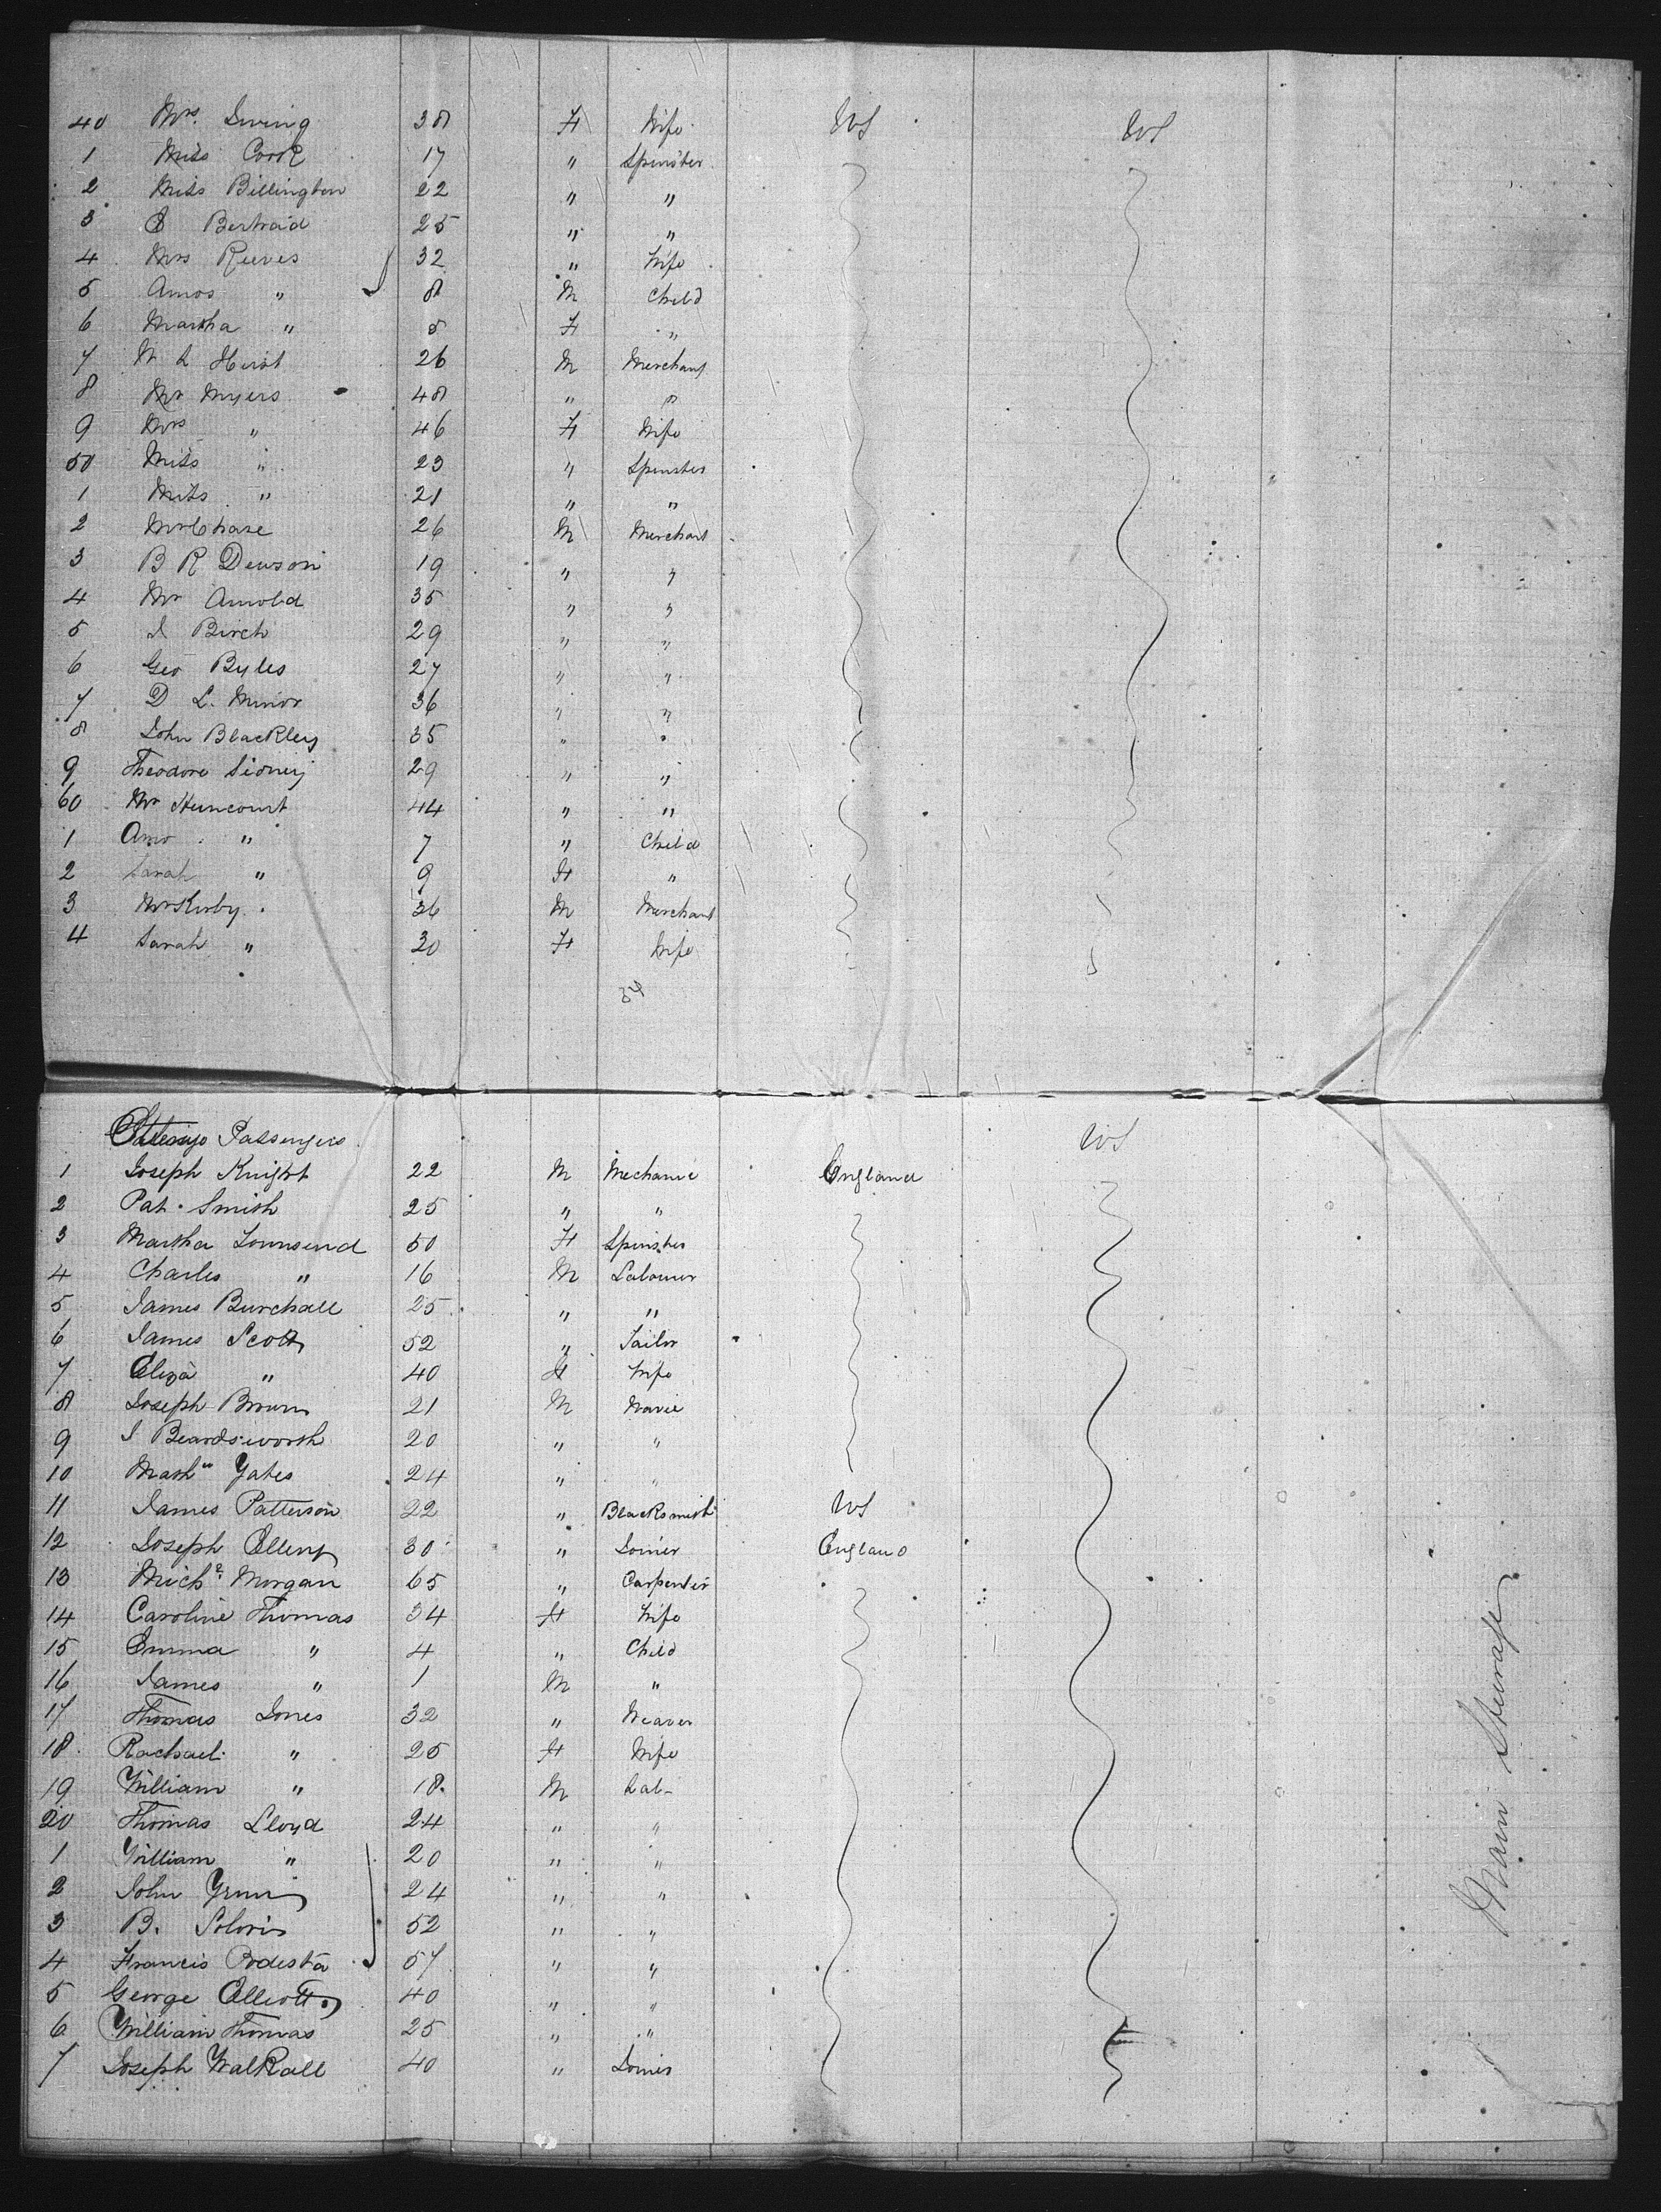 40 Mrs. Irving 38 F Wife US US
1 Miss Cook 17 " Spinster
2 Miss Billington 22 " "
3 Bertraid 25 " "
4 Mrs Reeves 32 " Wife
5 Amos " 8 M Child
6 Martha " 5 F "
7 Hurst 26 M Merchant
8 Mr Myers 48 " "
9 Mrs " 46 F Wife
50 Miss " 23 " Spinster
1 Miss " 21 " "
2 Mr Chase 26 M Merchant
3 B R Dewson 19 " "
4 Mr Arnold 35 " "
5 J Birch 29 " "
6 Geo Byles 27 " "
7 D L. Minor 36 " "
8 John Blackley 35 " "
9 Theodore Sidney 29 " "
60 Mr Huncourt 44 " "
1 " 7 " Child
2 Sarah " 9 F "
3 Mr Kirby 36 M Merchant
4 Sarah " 30 F Wife
Steerage Passengers US
1 Joseph Knight 22 M Mechanic England
2 Pat. Smith 25 " "
3 Martha Townsend 50 F Spinster
4 Charles " 16 M Labourer
5 James Burchall 25 " "
6 James Scott 52 " Tailor
7 Eliza " 40 F Wife
8 Joseph Brown 21 M Navie
9 J Beardsworth 20 " "
10 Yates 24 " "
11 James Patterson 22 " Blacksmith US
12 Joseph Ellery 30 " Joiner England
13 Michl. Morgan 65 " Carpenter
14 Caroline Thomas 34 F Wife
15 Emma " 4 " Child
16 James " 1 M "
17 Thomas Jones 32 " Weaver
18 Rachael " 25 F Wife
19 William " 18 M Lab-
20 Thomas Lloyd 24 " "
1 William " 20 " "
2 John 24 " "
3 B. Soloris 52 " "
4 Francis Podesta 57 " "
5 George Elliott 40 " "
6 William Thomas 25 " "
7 Joseph Walkall 40 " Joiner
Main Steerage